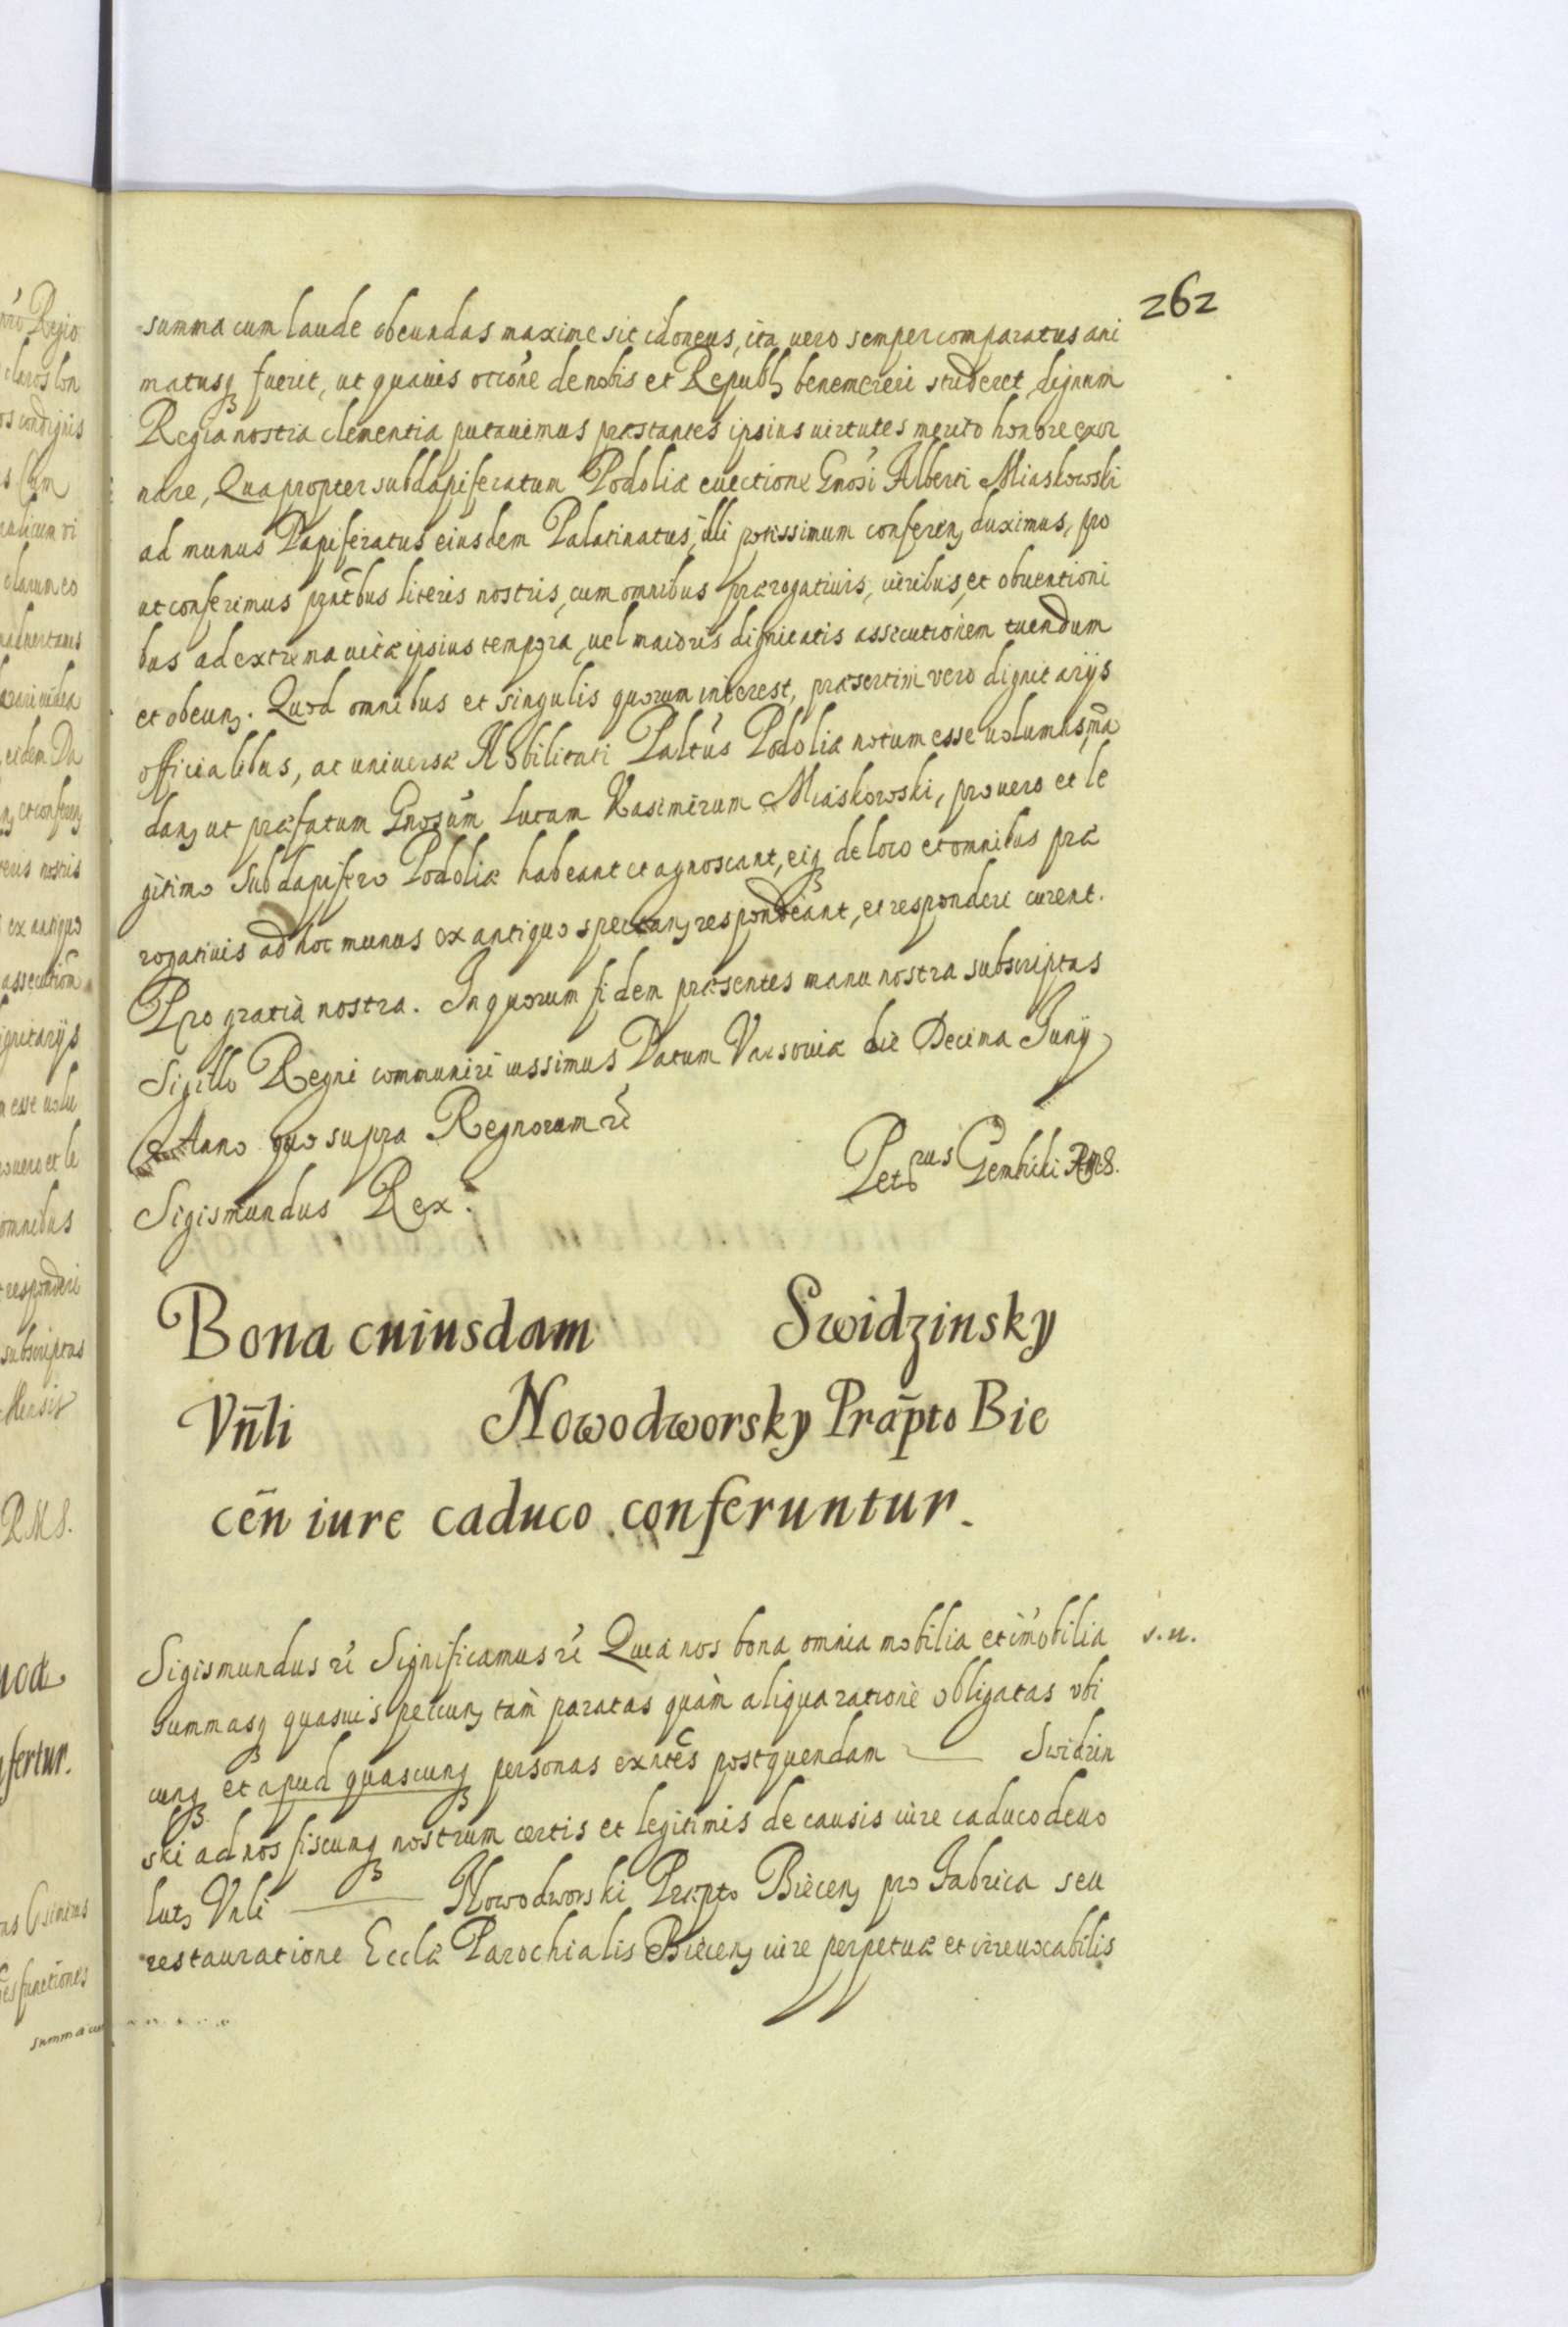 262
summa cum laude obeundas maxime sit idoneus, ita vero semper comparatus ani
matusq fuerit, ut quavis occõne de nobis et Republ benemereri studeret dignum
Regia nostra clementia putavimus præstantes ipsius virtutes merito honore exor
nare, Quapropter subdapiferatum Podoliæ evectione Gnosi Alberti Miaskowski
ad munus Dapiferatus eiusdem Palatinatus, illi potissimum conferen duximus, pro
ut conferimus pñtibus literis nostris, cum omnibus prærogativis, iuribus, et obventioni
bus ad extrema vitæ ipsius tempora, vel maioris dignitatis assecutionem tuendum
et obeun. Quod omnibus et singulis quorum interest, præsertim vero dignitarijs
officialibus, ac universæ Nobilitati Paltus Podoliæ notum esse volumus, mã
dan ut præfatum Gnosum Lucam Kasimirum Miaskowski, pro vero et le
gitimo Subdapifero Podoliæ habeant et agnoscant, eiq de loco et omnibus præ
rogativis ad hoc munus ex antiquo spectan respondeant, et responderi curent.
Pro gratia nostra. In quorum fidem præsentes manu nostra subscriptas
Sigillo Regni communiri iussimus Datum Varsoviæ die Decima Junij
Anno quo supra Regnorum rẽ
Petrus Gembicki RMS.
Sigismundus Rex.
Bona cuiusdam Swidzinsky
Vñli Nowodworsky Præp̃to Bie
ceñ iure caduco conferuntur.
Sigismundus rẽ Significamus rẽ Quia nos bona omnia mobilia et im̃obilia
s. n.
summasq quasvis pecun tam paratas quàm aliqua ratione obligatas ubi
cunq et apud quascunq personas exñtes post quendam — Swidzin
ski ad nos fiscumq nostrum certis et legitimis de causis iure caduco devo
lut Vnli — Nowodworski Præpto Biecen pro Fabrica seu
restauratione Ecclæ Parochialis Biecen iure perpetuæ et irrevocabilis